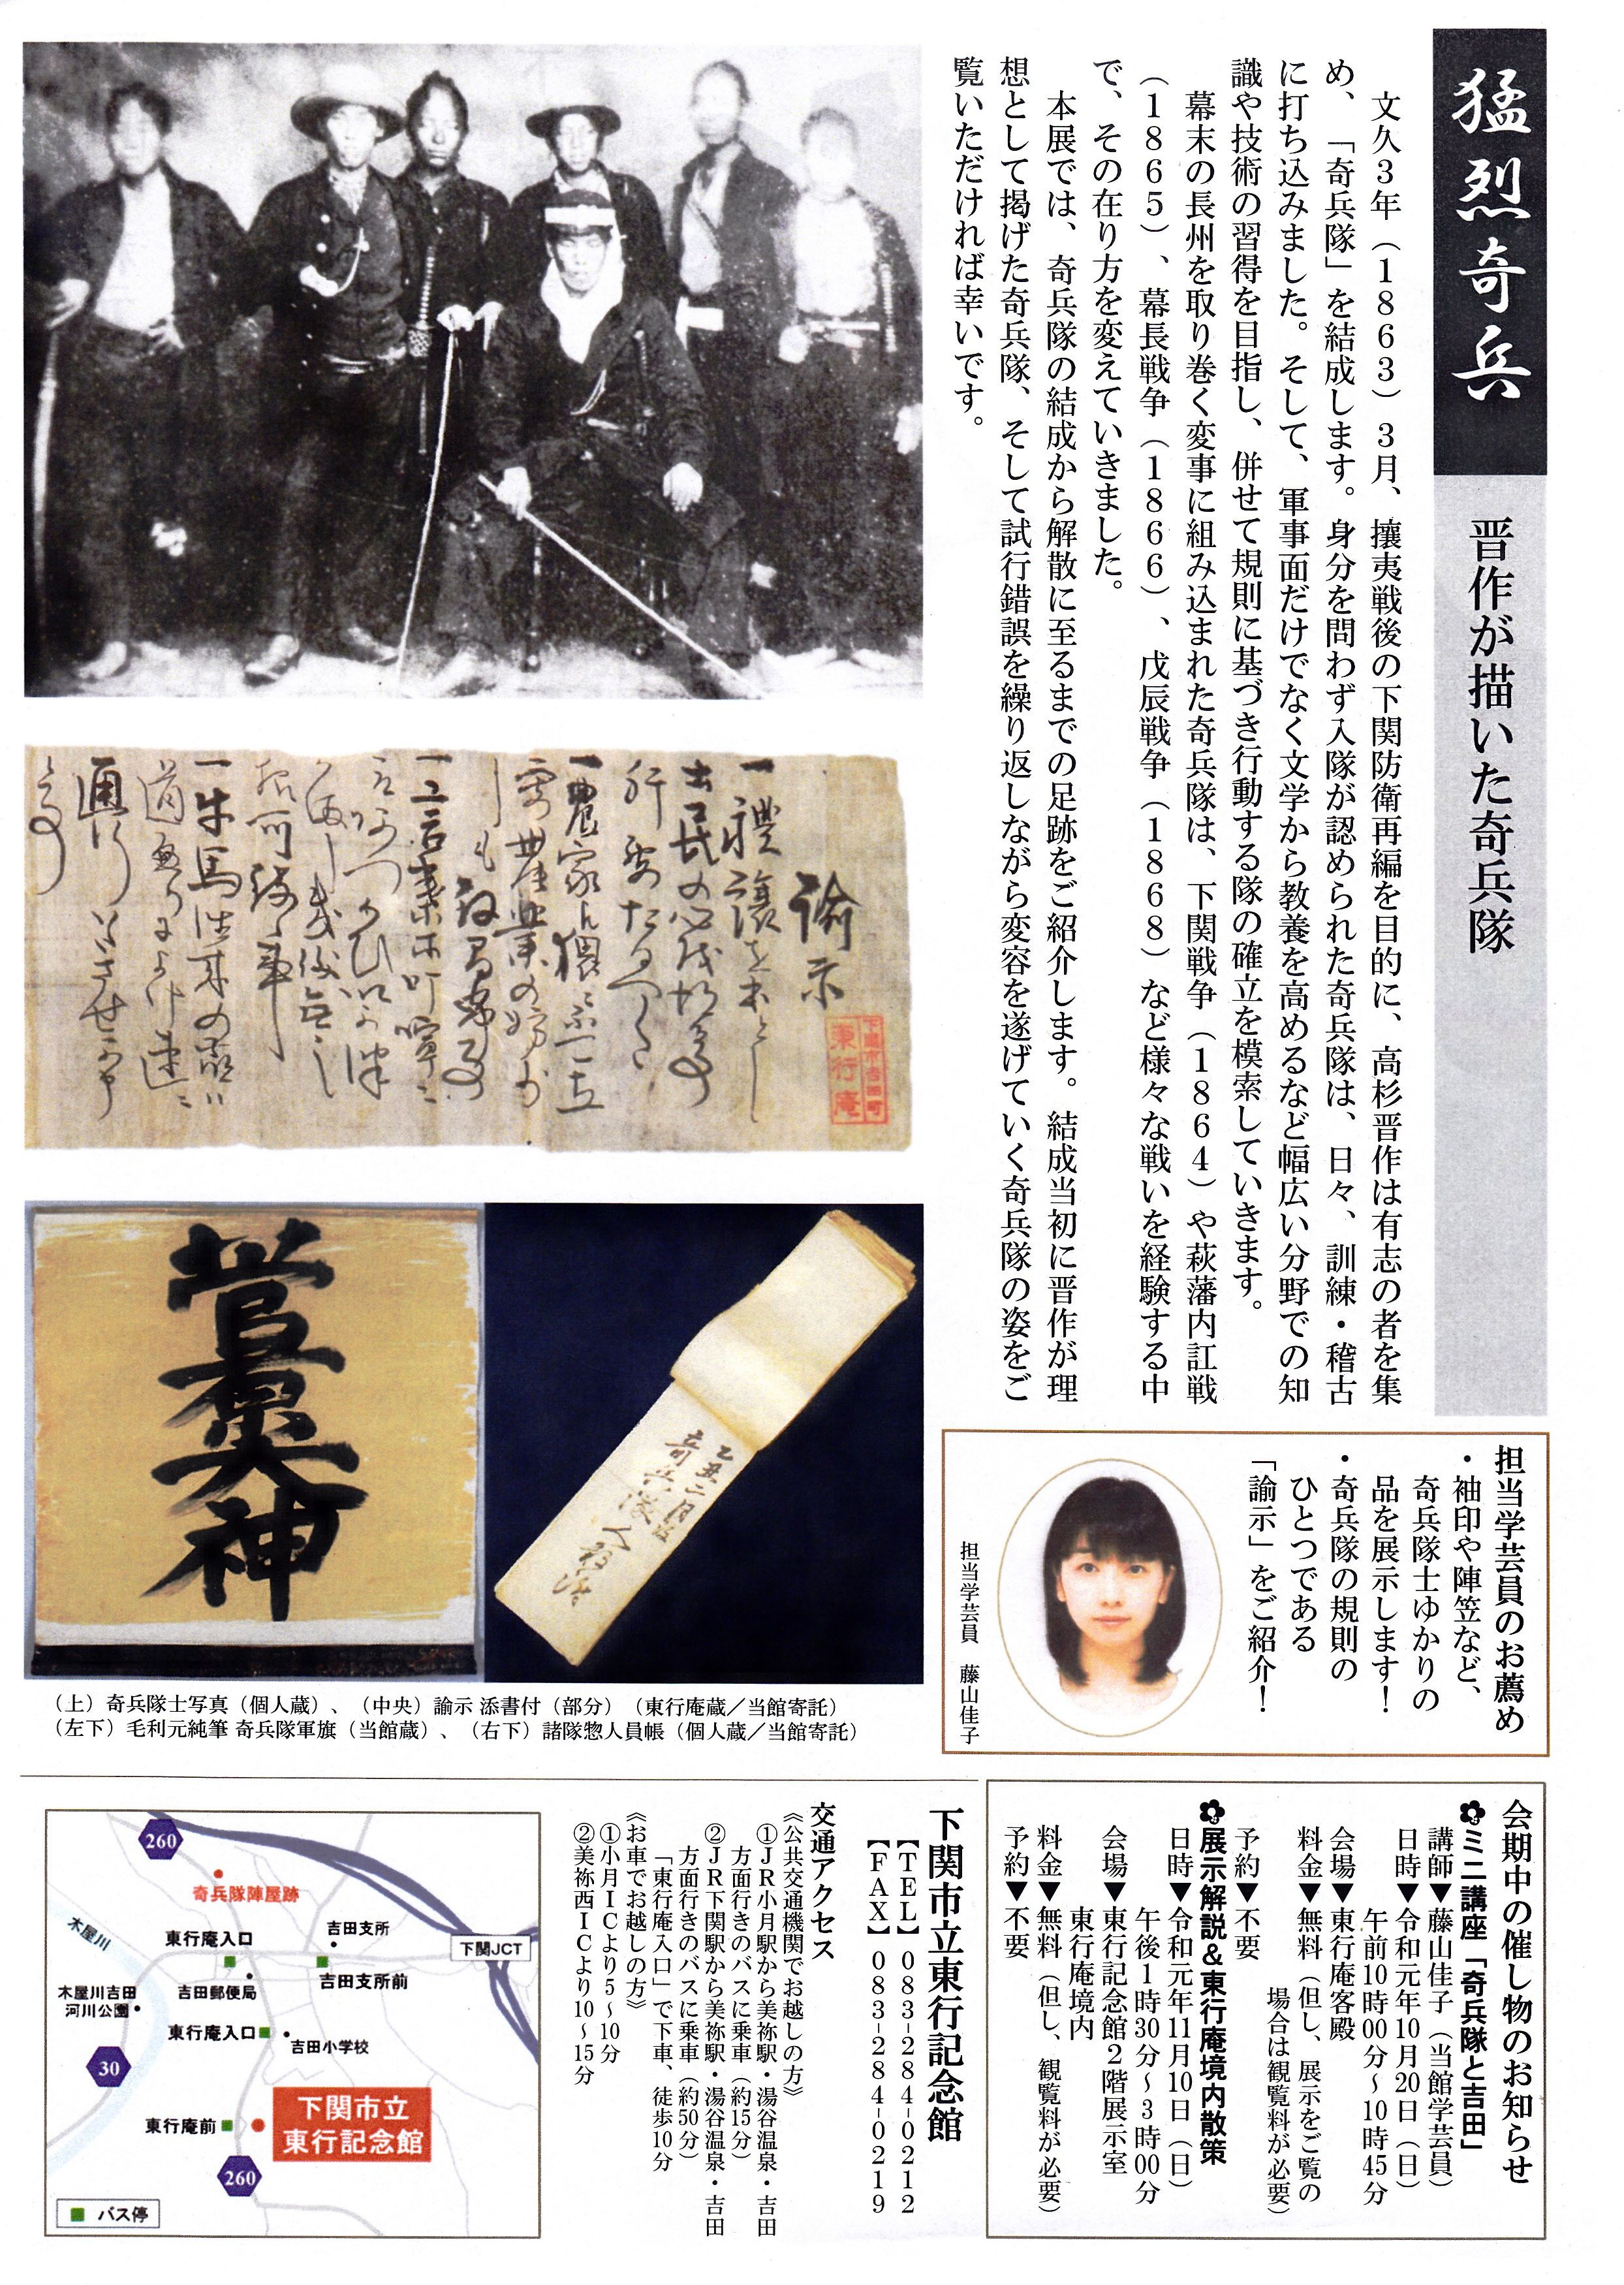 猛烈奇兵
晋作が描いた奇兵隊
文久3年（1863）3月、攘夷戦後の下関防衛再編を目的に、高杉晋作は有志の者を集
め、「奇兵隊」を結成します。身分を問わず入隊が認められた奇兵隊は、日々、訓練・稽古
に打ち込みました。そして、軍事面だけでなく文学から教養を高めるなど幅広い分野での知
識や技術の習得を目指し、併せて規則に基づき行動する隊の確立を模索していきます。
幕末の長州を取り巻く変事に組み込まれた奇兵隊は、下関戦争（1864）や萩藩内訌戦
（1865）、幕長戦争（1866）、戊辰戦争（1868）など様々な戦いを経験する中
で、その在り方を変えていきました。
本展では、奇兵隊の結成から解散に至るまでの足跡をご紹介します。結成当初に晋作が理
想として掲げた奇兵隊、そして試行錯誤を繰り返しながら変容を遂げていく奇兵隊の姿をご
覧いただければ幸いです。
諭示
下関市吉田町
東行庵
奇兵隊
（上）奇兵隊士写真（個人蔵）、（中央）諭示 添書付（部分）（東行庵蔵／当館寄託）
（左下）毛利元純筆 奇兵隊軍旗（当館蔵）、（右下）諸隊惣人員帳（個人蔵／当館寄託）
担当学芸員のお薦め
・袖印や陣笠など、
奇兵隊士ゆかりの
品を展示します！
・奇兵隊の規則の
ひとつである
「諭示」をご紹介！
担当学芸員 藤山佳子
会期中の催し物のお知らせ
ミニ講座「奇兵隊と吉田」
講師▼藤山佳子（当館学芸員）
日時▼令和元年10月20日（日）
午前10時00分～10時45分
会場▼東行庵客殿
料金▼無料（但し、展示をご覧の
場合は観覧料が必要）
予約▼不要
展示解説＆東行庵境内散策
日時▼令和元年11月10日（日）
午後1時30分～3時00分
会場▼東行記念館2階展示室
東行庵境内
料金▼無料（但し、観覧料が必要）
予約▼不要
下関市立東行記念館
【TEL】083-284-0212
【FAX】083-284-0219
交通アクセス
《公共交通機関でお越しの方》
①JR小月駅から美祢駅・湯谷温泉・吉田
方面行きのバスに乗車（約15分）
②JR下関駅から美祢駅・湯谷温泉・吉田
方面行きのバスに乗車（約50分）
「東行庵入口」で下車、徒歩10分
《お車でお越しの方》
①小月ICより5～10分
②美祢西ICより10～15分
260
奇兵隊陣屋跡
木屋川
東行庵入口
吉田支所
下関JCT
吉田支所前
吉田郵便局
木屋川吉田
河川公園
東行庵入口
吉田小学校
30
下関市立
東行記念館
東行庵前
260
バス停